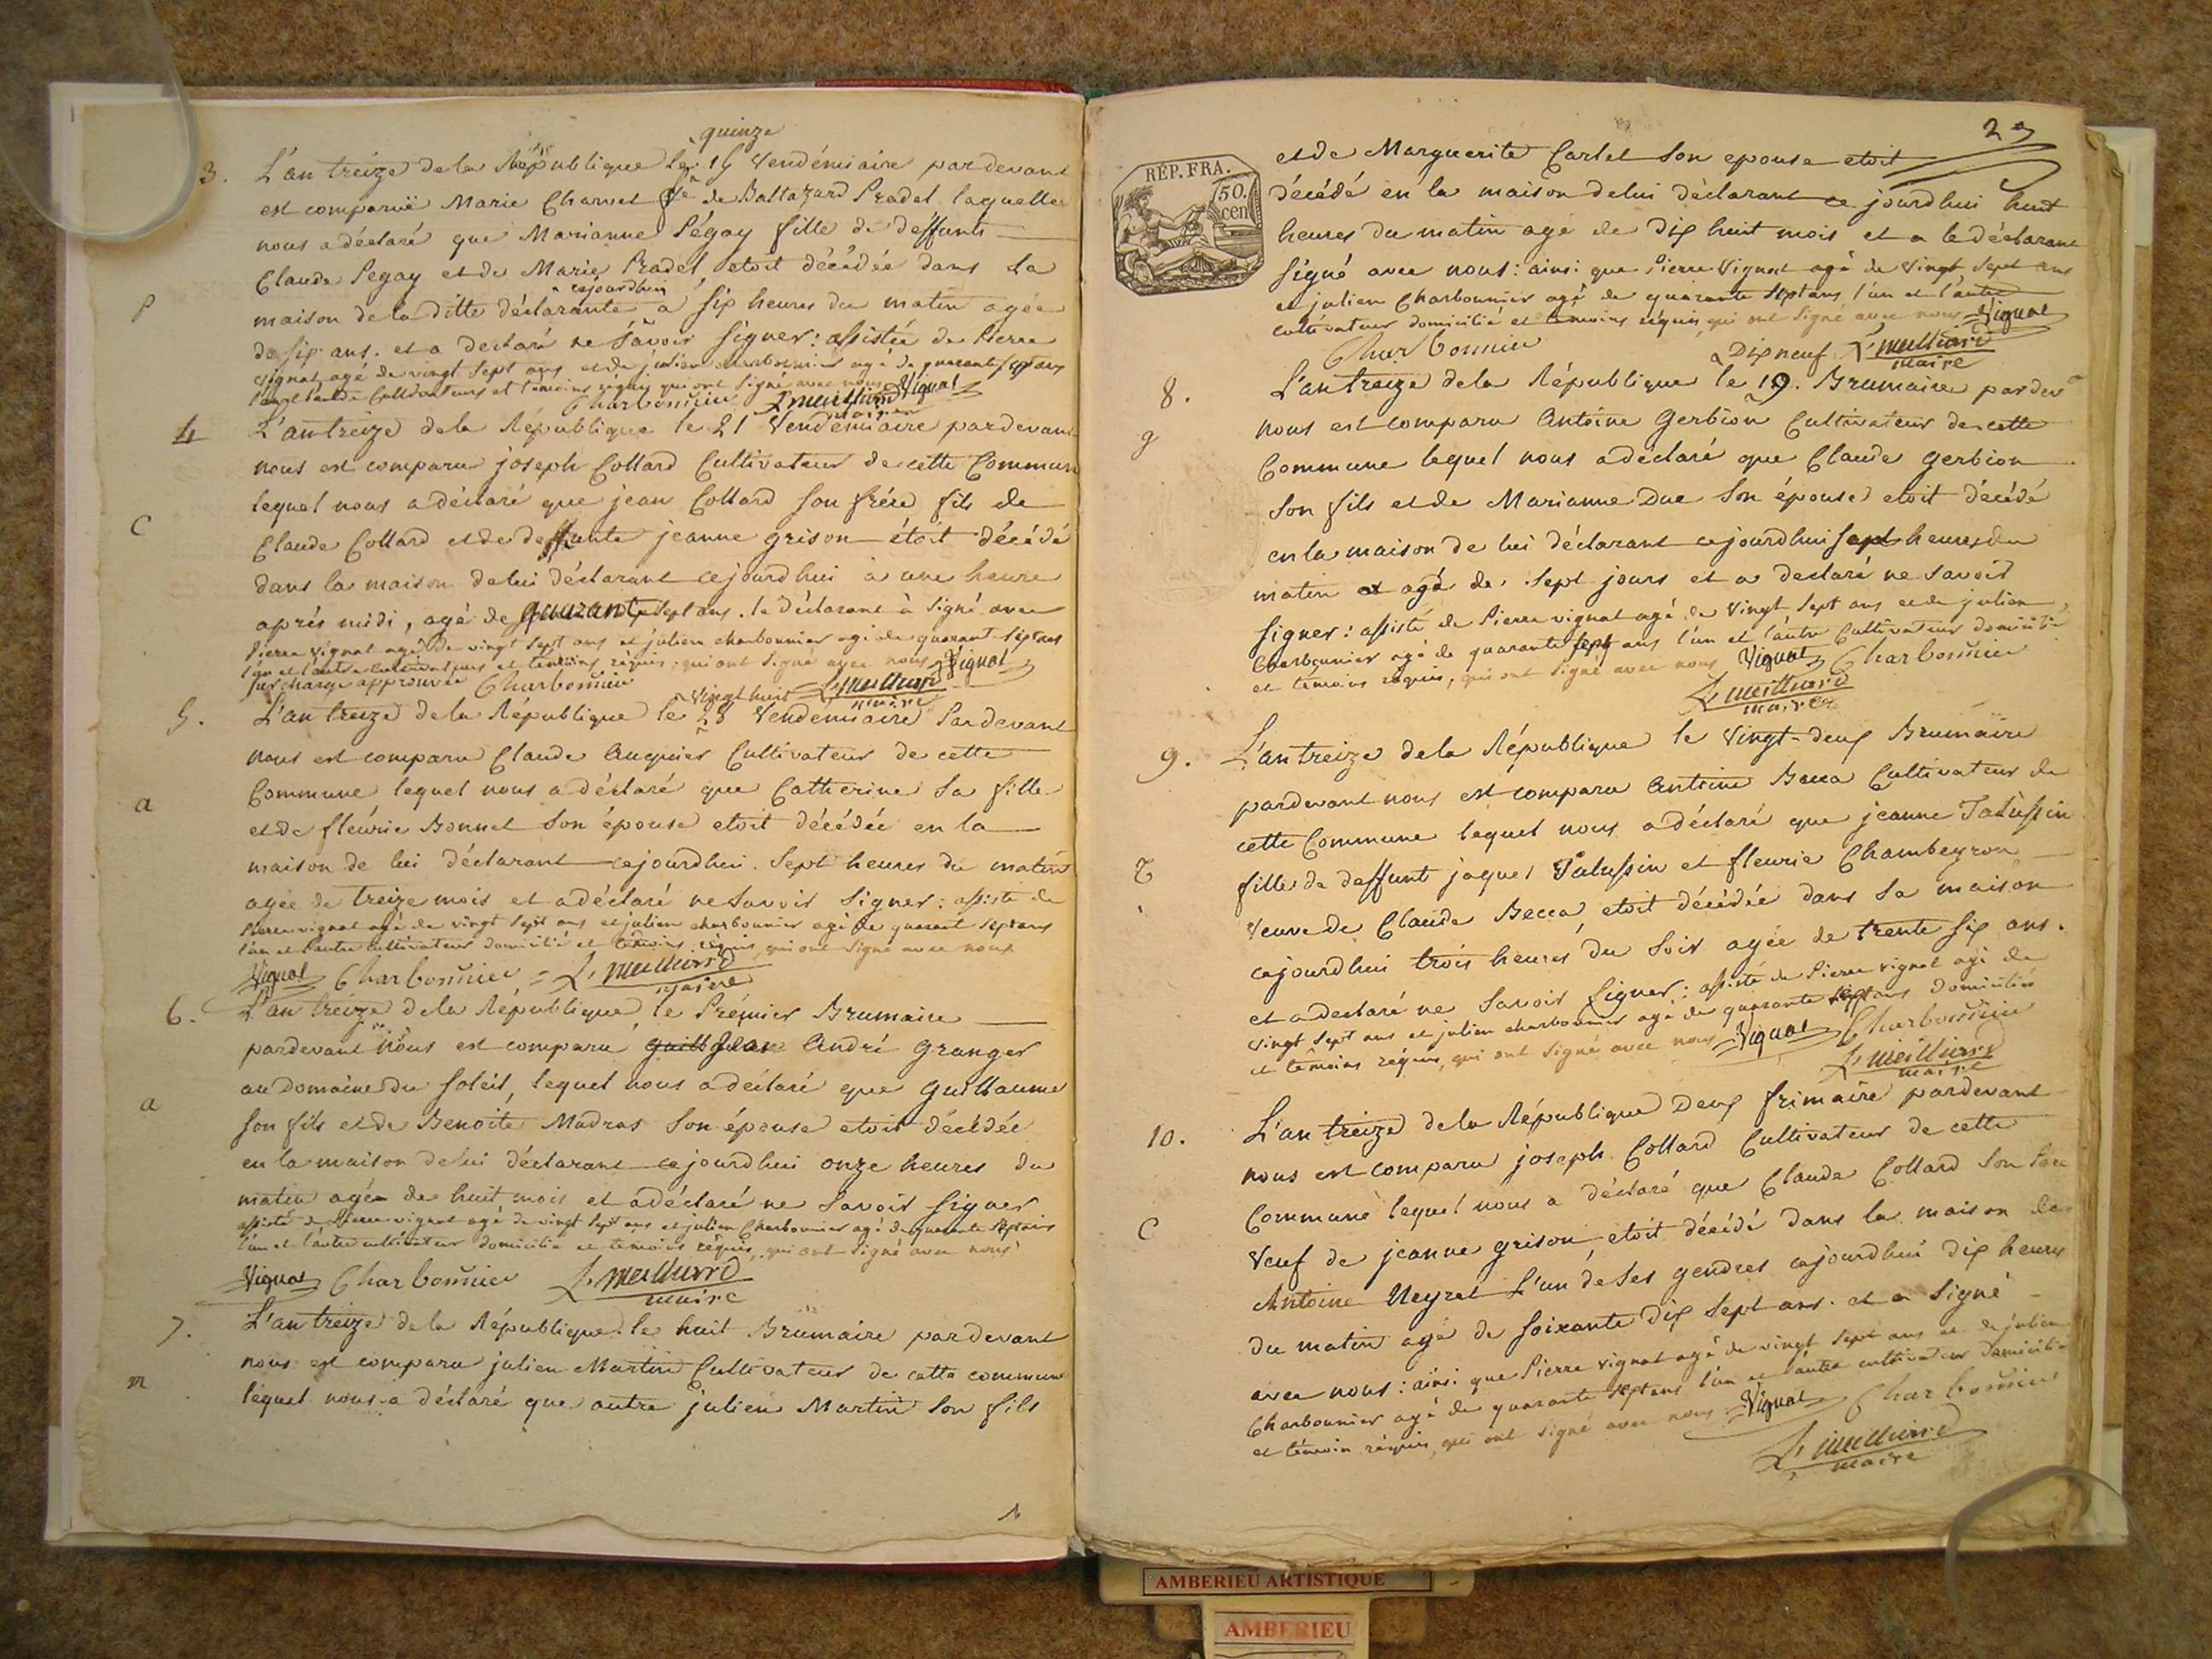 quinze
3. L'an treize de la République le 15 Vendémiaire pardevant
est comparuë Marie Charvet fe de Baltazard Pradel laquelle
nous a déclaré que Marianne Pégay fille de deffunts
Claude Pegay et de Marie Pradel, etoit décédée dans la
cejourdhui
P maison de la ditte déclarante à six heures du matin agée
de six ans. et a declaré ne Savoir signer: assistée de Pierre
vignat agé de vingt sept ans et de julien charbonnier agé de quarante sept ans
l'un et l'autre Cultivateurs et témoins requis qui ont signé avec nous Vignat
Charbonnier
maire
4 L'an treize de la République le 21 Vendémiaire pardevant
nous est comparu joseph Collard Cultivateur de cette Commune
lequel nous a déclaré que jean Collard son frére fils de
C Claude Collard et de deffunte jeanne grison étoit décédé
dans la maison de lui déclarant cejourdhui à une heure
aprés midi, agé de quarante sept ans. le Déclarant à signé avec
Pierre vignat agé de vingt sept ans et julien charbonnier agé de quarant septans
l'un et l'autre cultivateurs et témoins réquis, qui ont signé avec nous Vignat
surcharge approuvée Charbonnier
vingt huit
maire
5. L'an treize de la République le 28 Vendemiaire Pardevant
nous est comparu Claude Auquier Cultivateur de cette
a Commune lequel nous a déclaré que Catherine sa fille
et de fleurie Bonnet son épouse etoit décédée en la
maison de lui déclarant cejourdhui sept heures du matin
agée de treize mois et a déclaré ne Savoir signer: assisté de
Pierre vignat agé de vingt sept ans et julien charbonnier agé de quarant septans
l'un et l'autre cultivateur domicilié et témoins réquis, qui ont signé avec nous
Vignat Charbonnier
maire
6. L'an treize de la République, le Prémier Brumaire
pardevant nous est comparu André Granger
au Domaine du Soléil, lequel nous a déclaré que Guillaume
a son fils et de Benoite Madras son épouse etoit décédée
en la maison de lui déclarant cejourdhui onze heures du
matin agée de huit mois et a déclaré ne Savoir signer
assisté de Pierre vignat agé de vingt sept ans et julien Charbonnier agé de quarante septans
l'un et l'autre cultivateur domicilié et temoins réquis, qui ont signé avec nous
Vignat Charbonnier
maire
7. L'an treize de la République le huit Brumaire pardevant
m nous est comparu julien Martin Cultivateur de cette commune
léquel nous a déclaré que autre julien Martin son fils
RÉP. FRA.
50.
cen
et de Marguerite Carlet son epouse etoit
décédé en la maison de lui déclarant ce jourdhui huit
heures du matin agé de Dix huit mois et a le déclarant
signé avec nous: ainsi que Pierre Vignat agé de Vingt sept ans
et julien Charbonnier agé de quarante septans l'un et l'autre
cultivateur domicilié et temoins réquis qui ont signé avec nous Vignat
Charbonnier
maire
Dix neuf
8. L'an treize de la République le 19. Brumaire pardev
g nous est comparu Antoine Gerbion Cultivateur de cette
Commune lequel nous a déclaré que Claude gerbion
son fils et de Marianne Duc son épouse etoit décédé
en la maison de lui déclarant cejourdhui sept heures du
matin agé de sept jours et a declaré ne Savoir
signer: assisté de Pierre vignat agé de Vingt sept ans et de julien
Charbonnier agé de quarante sept ans l'un et l'autre Cultivateur domicilié
et témoins réquis, qui ont signé avec nous Vignat Charbonnier
maire
9. L'an treize de la République le Vingt-deux Brumaire
pardevant nous est comparu Antoine Becca Cultivateur de
cette Commune lequel nous a déclaré que jeanne Talussin
T fille de deffunt jaques Talussin et fleurie Chambeyron
veuve de Claude Becca etoit décédée dans sa maison
cejourdhui trois heures du soir agée de trente six ans.
et a declaré ne Savoir signer: assisté de Pierre vignat agé de
vingt sept ans et julien charbonnier agé de quarante sept ans domiciliés
et témoins réquis, qui ont signé avec nous Vignat Charbonnier
maire
10. L'an treize de la République Deux frimaire pardevant
nous est comparu joseph Collard Cultivateur de cette
Commune lequel nous a déclaré que Claude Collard son Pere
C Veuf de jeanne grison, etoit décédé dans la maison de
Antoine Neyret l'un de ses gendres cejourdhui dix heures
du matin agé de soixante dix sept ans. et a signé
avec nous: ainsi que Pierre vignat agé de vingt sept ans et de julien
Charbonnier agé de quarante septans l'un et l'autre cultivateur domicilié
et témoin réquis, qui ont signé avec nous Vignat Charbonnier
maire
AMBERIEU ARTISTIQUE
AMBERIEU